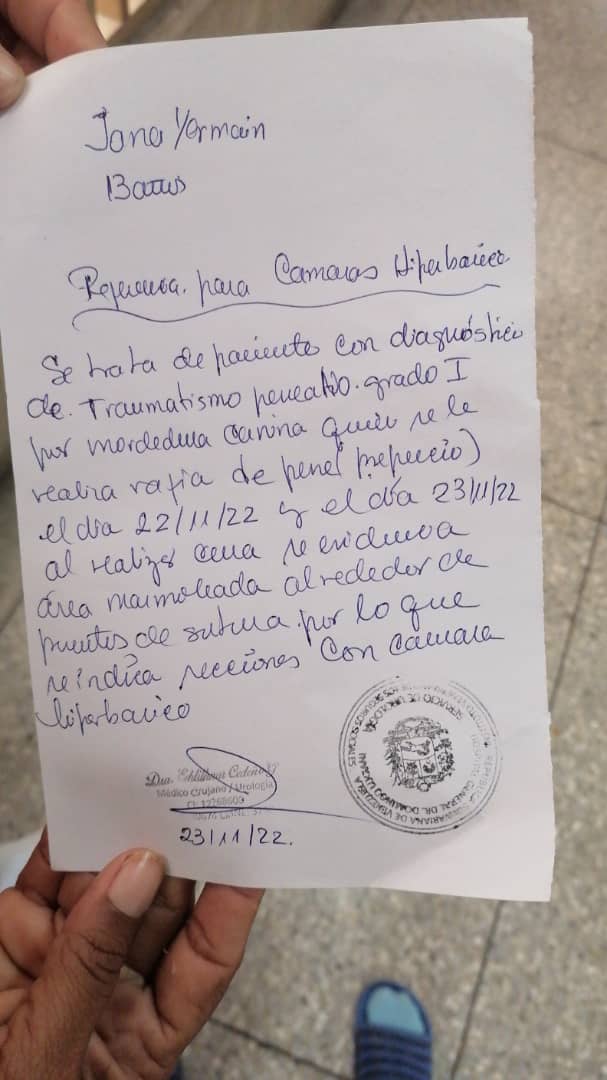 Yormain
Referencia. para Camaras Hiperbarica
Se trata de paciente con diagnóstico
de. Traumatismo peneano. grado I
por mordedura canina quien se le
realiza rafia de pene( prepucio)
el dia 22/11/22 y el día 23/11/22
al realizar cura se evidencia
área marmoleada alrededor de
puntos de sutura por lo que
se indica secciones con camara
hiperbarica
Dra.
Médico Cirujano / Urología
23/11/22.
SERVICIO DE UROLOGIA